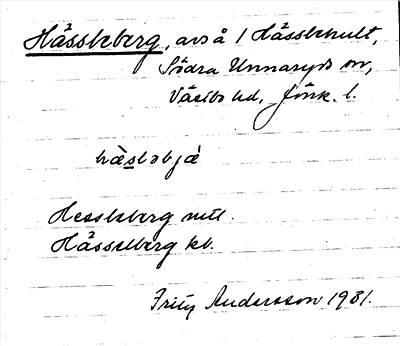 Hässleberg, avs å 1 Hässlehult,
Södra Unnaryds sn,
Västbo hd, Jönk. l.
hæ̀slə bjæ̀
Hessleberg mtl.
Hässelberg kb.
Fritz Andersson 1931.